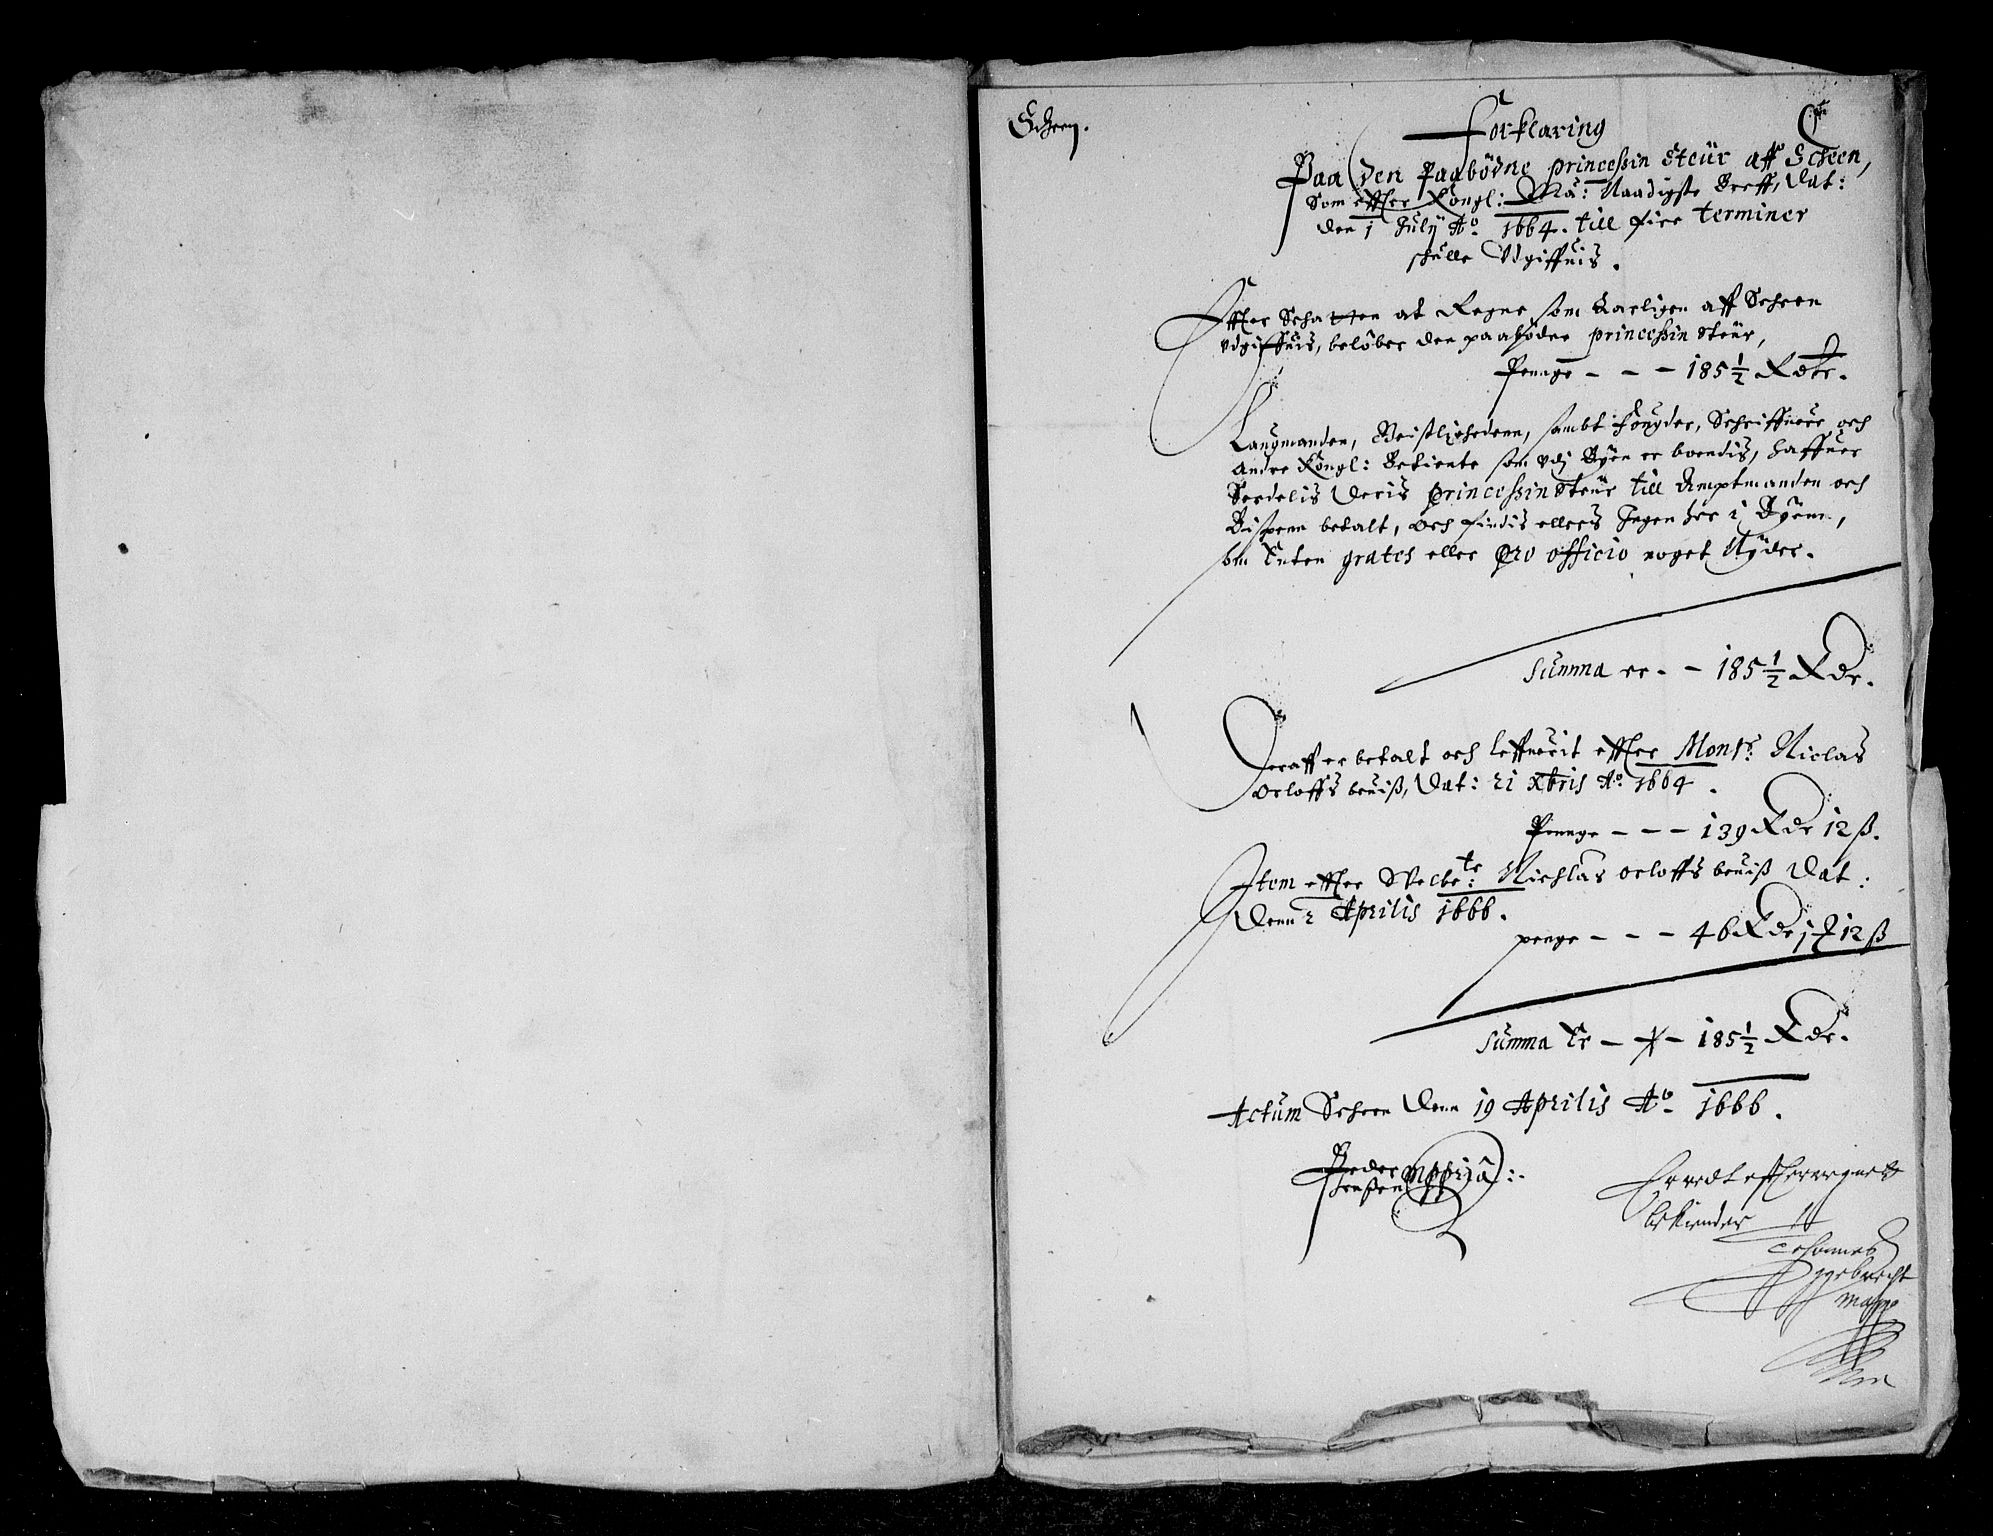 Scheen.
Forklaring
Paa den Paabödne princessin Steür aff Scheen,
Som effter Kongl: Ma: Naadigste Breff, Dat:
den 1 Julÿ Ao. 1664. till fire terminer
schulle Udgiffuis.
Effter Schatten at Regne som Aarligen aff Scheen
udgiffuis, belöber den paabödne princessin Steür,
Penge - - - 185½ Rdlr.
Laugmanden, Geistlighedenn, sambt fougder, Schriffuere och
Andre Kongl: Betiente som udj Byen er boendis, haffuer
Serdelis Deris princessin Steür till Amptmanden och
Bispenn betalt, och findis ellers Ingen her i Byenn,
som Enten gratis eller pro officio noget Nÿder.
Summa er - - 185½ Rdr.
Deraff er betalt och leffuerit effter Monsr. Niclas
Orloffs beuiß, Dat: 21 xbris Ao. 1664.
Penge - - - 139 Rdr 12 ß.
Item effter Welbte: Nichlas Orloffs beuiß Dat:
Denn 2 Aprilis 1666.
penge - - - 46 Rdr 1 12 ß
Summa Er - - 185½ Rdr.
Actum Scheen Denn 19 Aprilis Ao. 1666.
Peder
Jenßen mppriâ
bekiender
Johannes
mappe